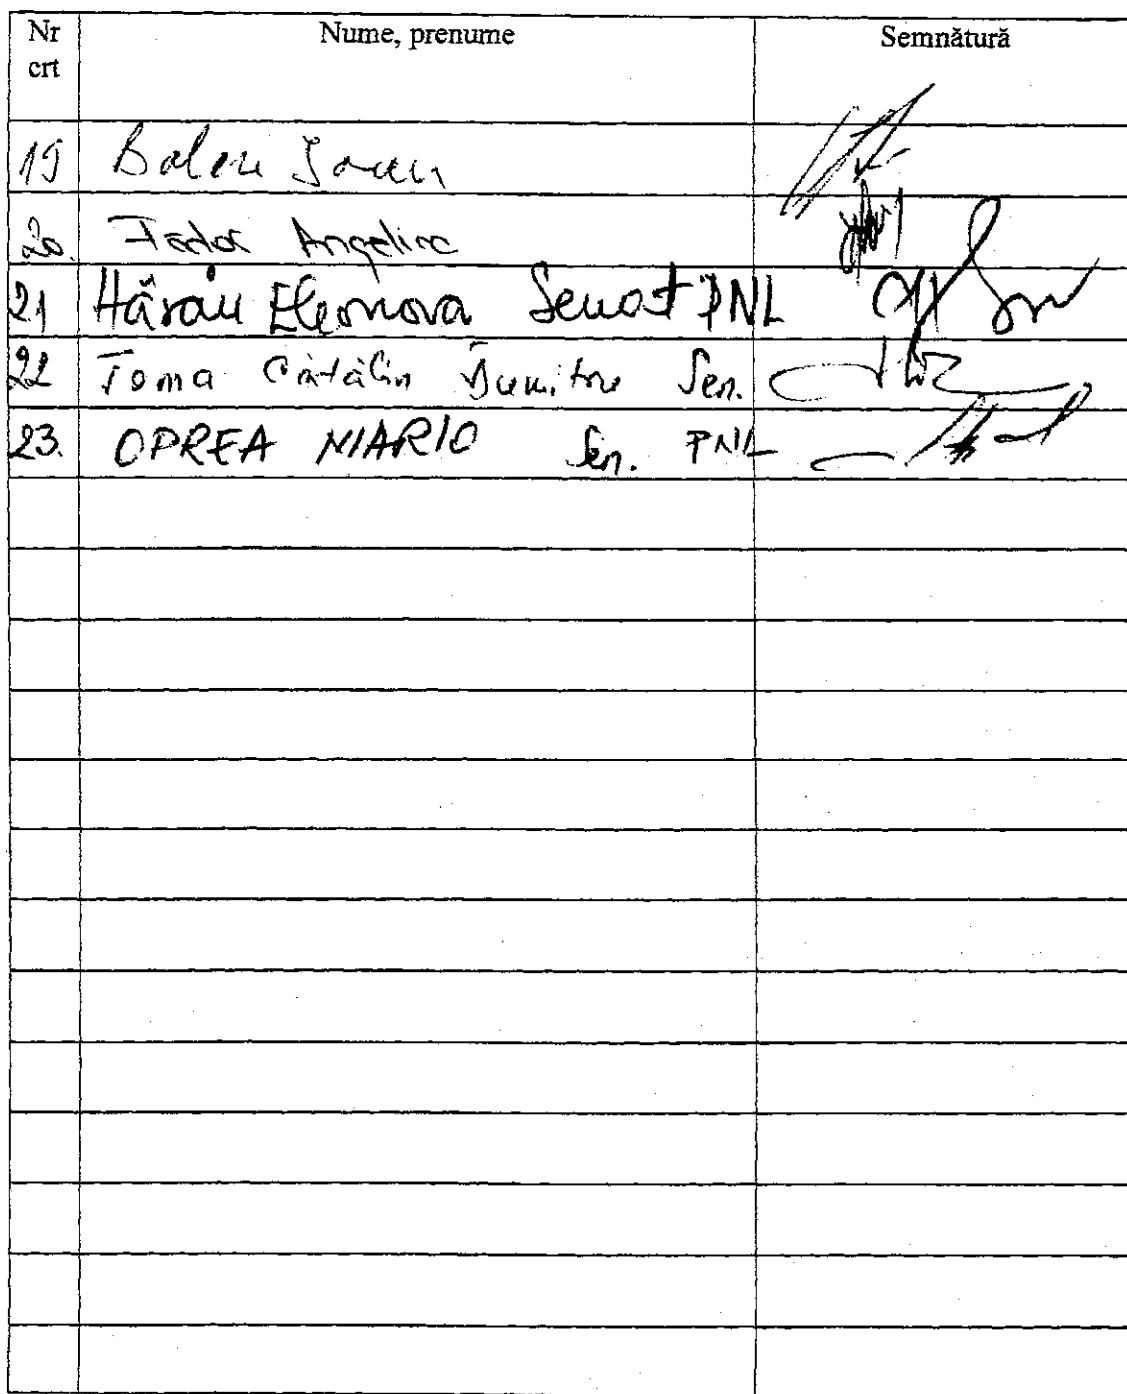 Nr crt Nume, prenume Semnătură
19 Balan Ioan
20. Fador Angelica
21 Hărău Eleonora Senat PNL
22 Toma Cătălin Dumitru Sen.
23. OPREA MARIO Sen. PNL